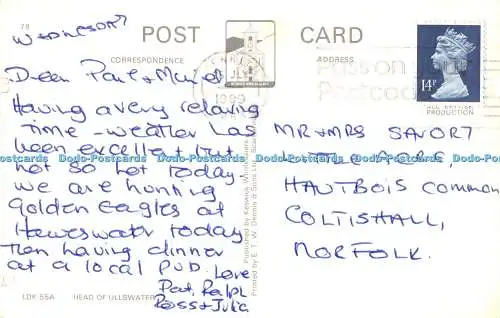 78
WEDNESDAY
POST CARD
CORRESPONDENCE
ADDRESS
Dear Paul & Muriel
Having a very relaxing
time - weather has
been excellent but
not so hot today.
we are hunting
golden eagles at
Haweswater today
then having dinner
at a local pub. Love
Pat, Ralph
Ross & Julia
LDK 55A HEAD OF ULLSWATER
Printed by E. T. W. Dennis & Sons Ltd.
1989
Pass on your
Postcode
14P
PRODUCTION
MR & MRS SAVORY
HAUTBOIS COMMON
COLTISHALL,
NORFOLK.
Dodo-Postcards Dodo-Postcards Dodo-Postcards Dodo-Postcards Dodo-Postcards